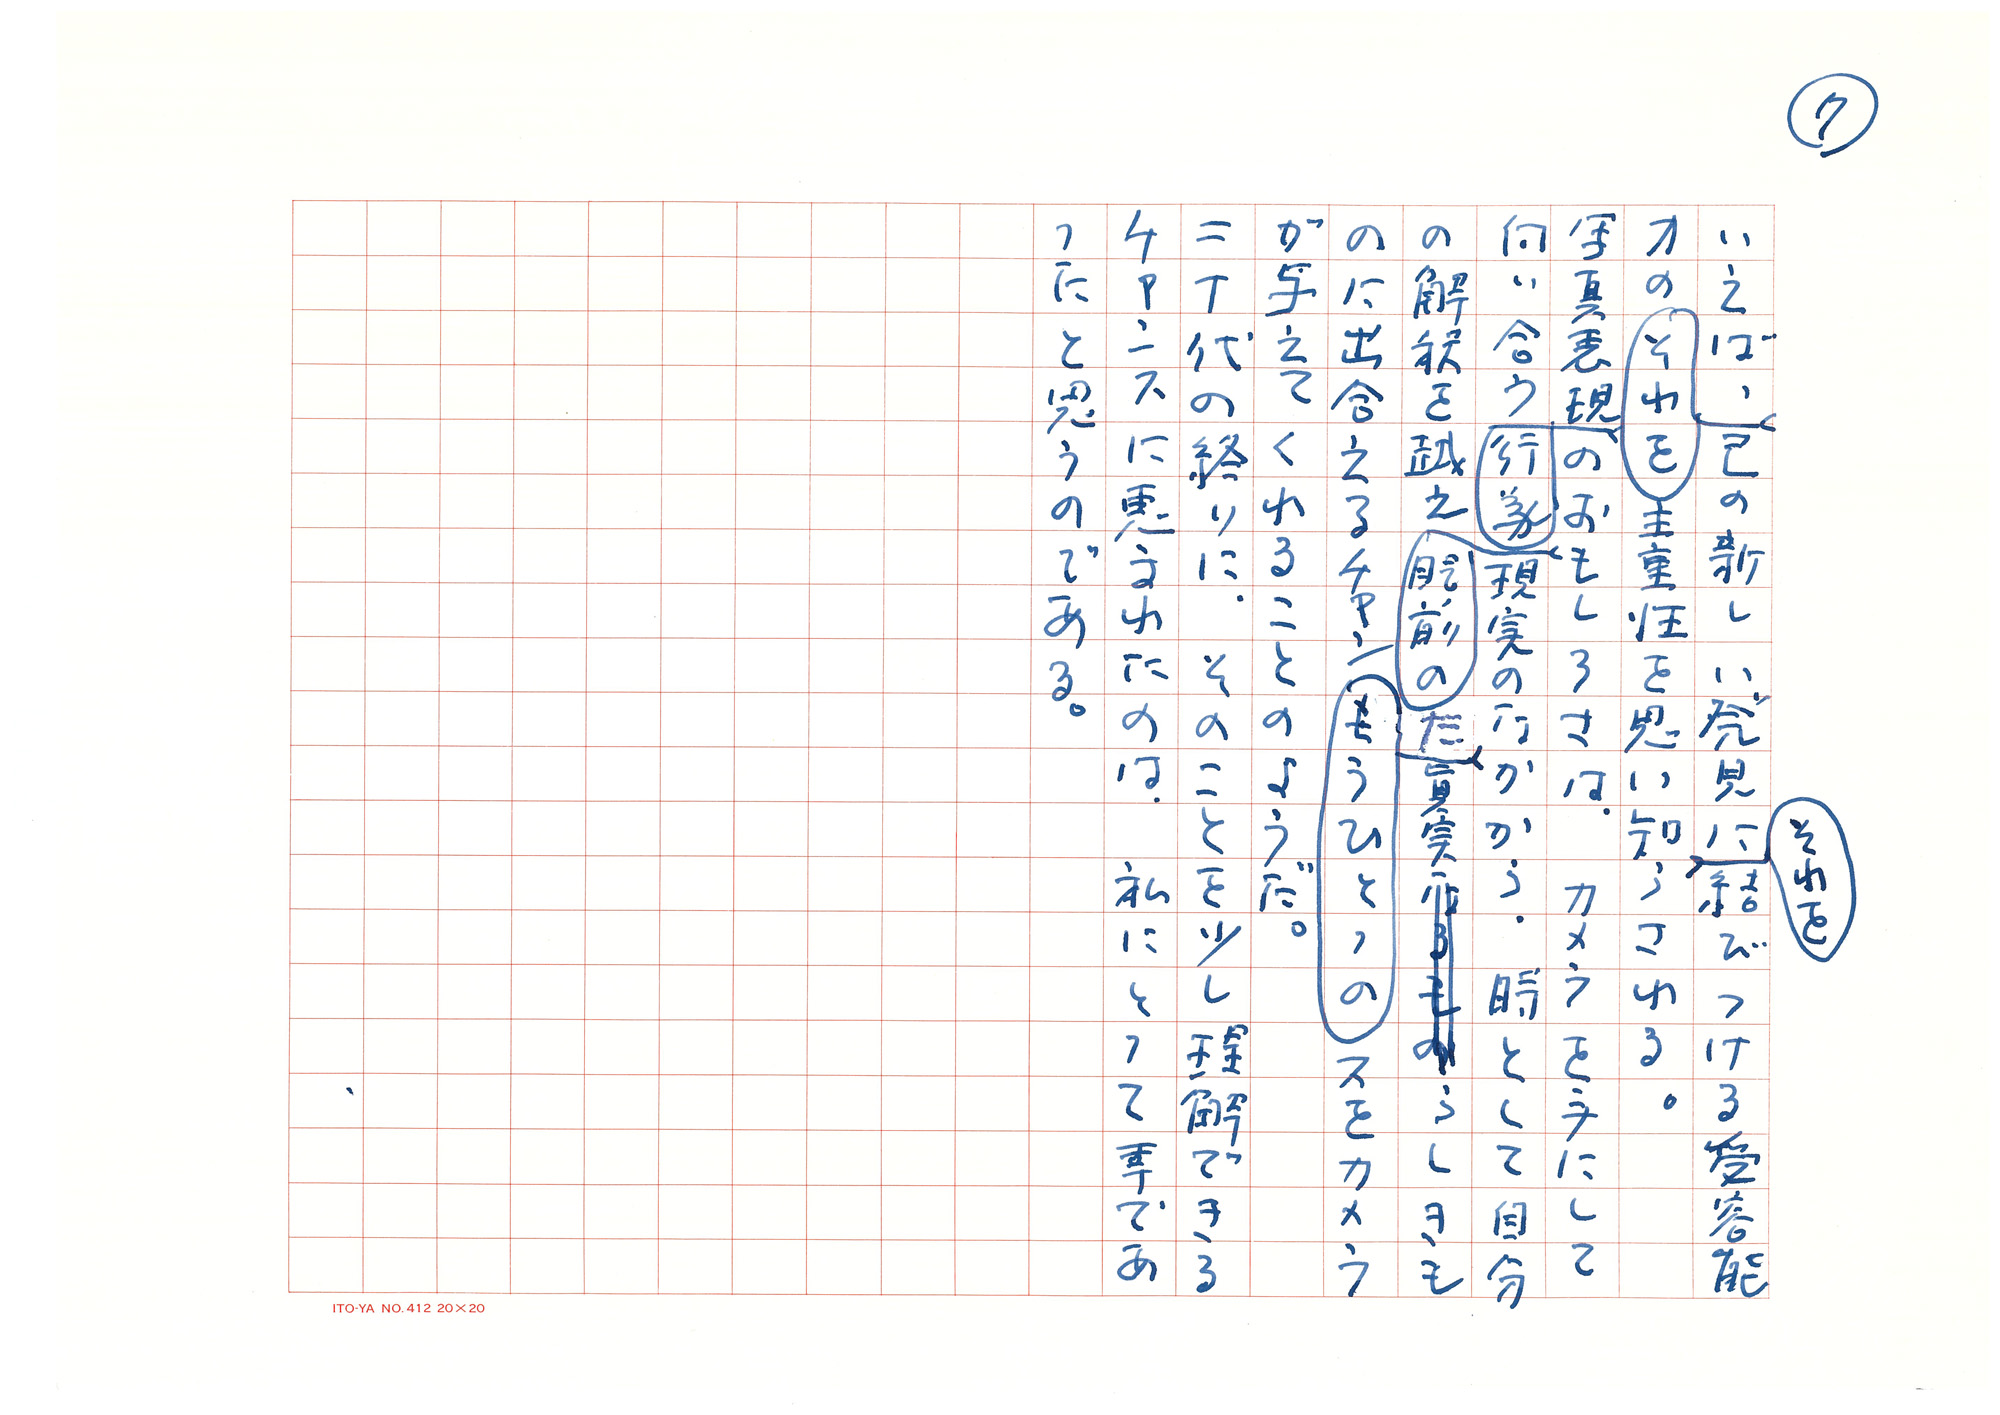 ⑦
それを
いえば、己の新しい発見に結びつける受容能
力のそれを重性を思い知らされる。
写真表現のおもしろさは、カメラを手にして
向い合う行為現実のなかから、時として自分
の解釈を越え眼前の真実なるものらしきも
のに出合えるチャンもうひとつのスをカメラ
が与えてくれることのようだ。
二十代の終りに、そのことを少し理解できる
チャンスに恵まれたのは、私にとって幸であ
ったと思うのである。
ITO-YA NO.412 20×20